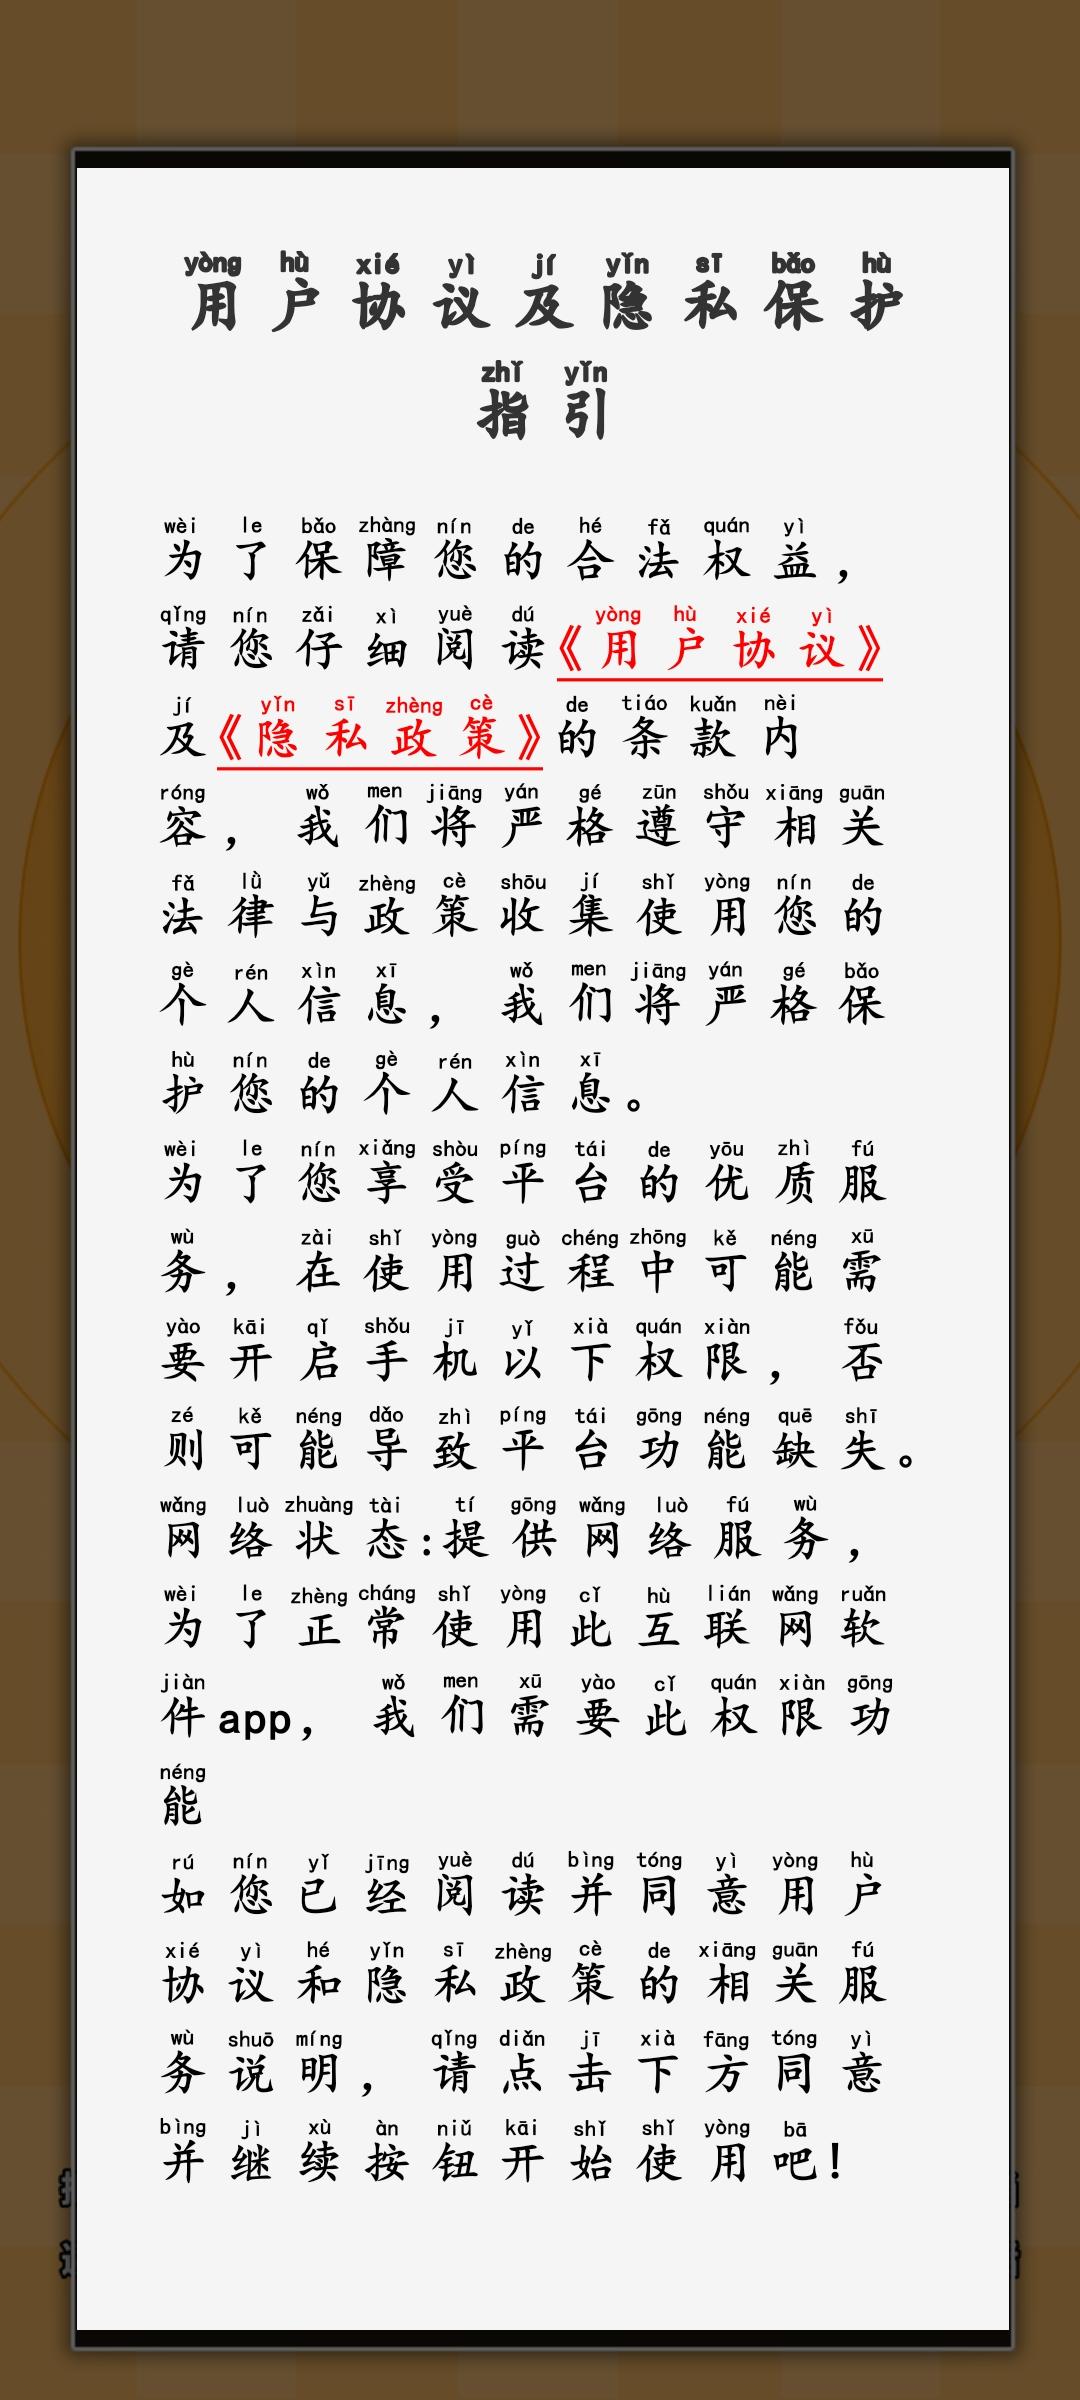 yòng hù xié yì jí yǐn sī bǎo hù
用户协议及隐私保护
zhǐ yǐn
指引
wèi le bǎo zhàng nín de hé fǎ quán yì
为了保障您的合法权益，
qǐng nín zǎi xì yuè dú yòng hù xié yì
请您仔细阅读《用户协议》
jí yǐn sī zhèng cè de tiáo kuǎn nèi
及《隐私政策》的条款内
róng wǒ men jiāng yán gé zūn shǒu xiāng guān
容，我们将严格遵守相关
fǎ lǜ yǔ zhèng cè shōu jí shǐ yòng nín de
法律与政策收集使用您的
gè rén xìn xī wǒ men jiāng yán gé bǎo
个人信息，我们将严格保
hù nín de gè rén xìn xī
护您的个人信息。
wèi le nín xiǎng shòu píng tái de yōu zhì fú
为了您享受平台的优质服
wù zài shǐ yòng guò chéng zhōng kě néng xū
务，在使用过程中可能需
yào kāi qǐ shǒu jī yǐ xià quán xiàn fǒu
要开启手机以下权限，否
zé kě néng dǎo zhì píng tái gōng néng quē shī
则可能导致平台功能缺失。
wǎng luò zhuàng tài tí gōng wǎng luò fú wù
网络状态:提供网络服务，
wèi le zhèng cháng shǐ yòng cǐ hù lián wǎng ruǎn
为了正常使用此互联网软
jiàn wǒ men xū yào cǐ quán xiàn gōng
件app，我们需要此权限功
néng
能
rú nín yǐ jīng yuè dú bìng tóng yì yòng hù
如您已经阅读并同意用户
xié yì hé yǐn sī zhèng cè de xiāng guān fú
协议和隐私政策的相关服
wù shuō míng qǐng diǎn jī xià fāng tóng yì
务说明，请点击下方同意
bìng jì xù àn niǔ kāi shǐ shǐ yòng bā
并继续按钮开始使用吧！